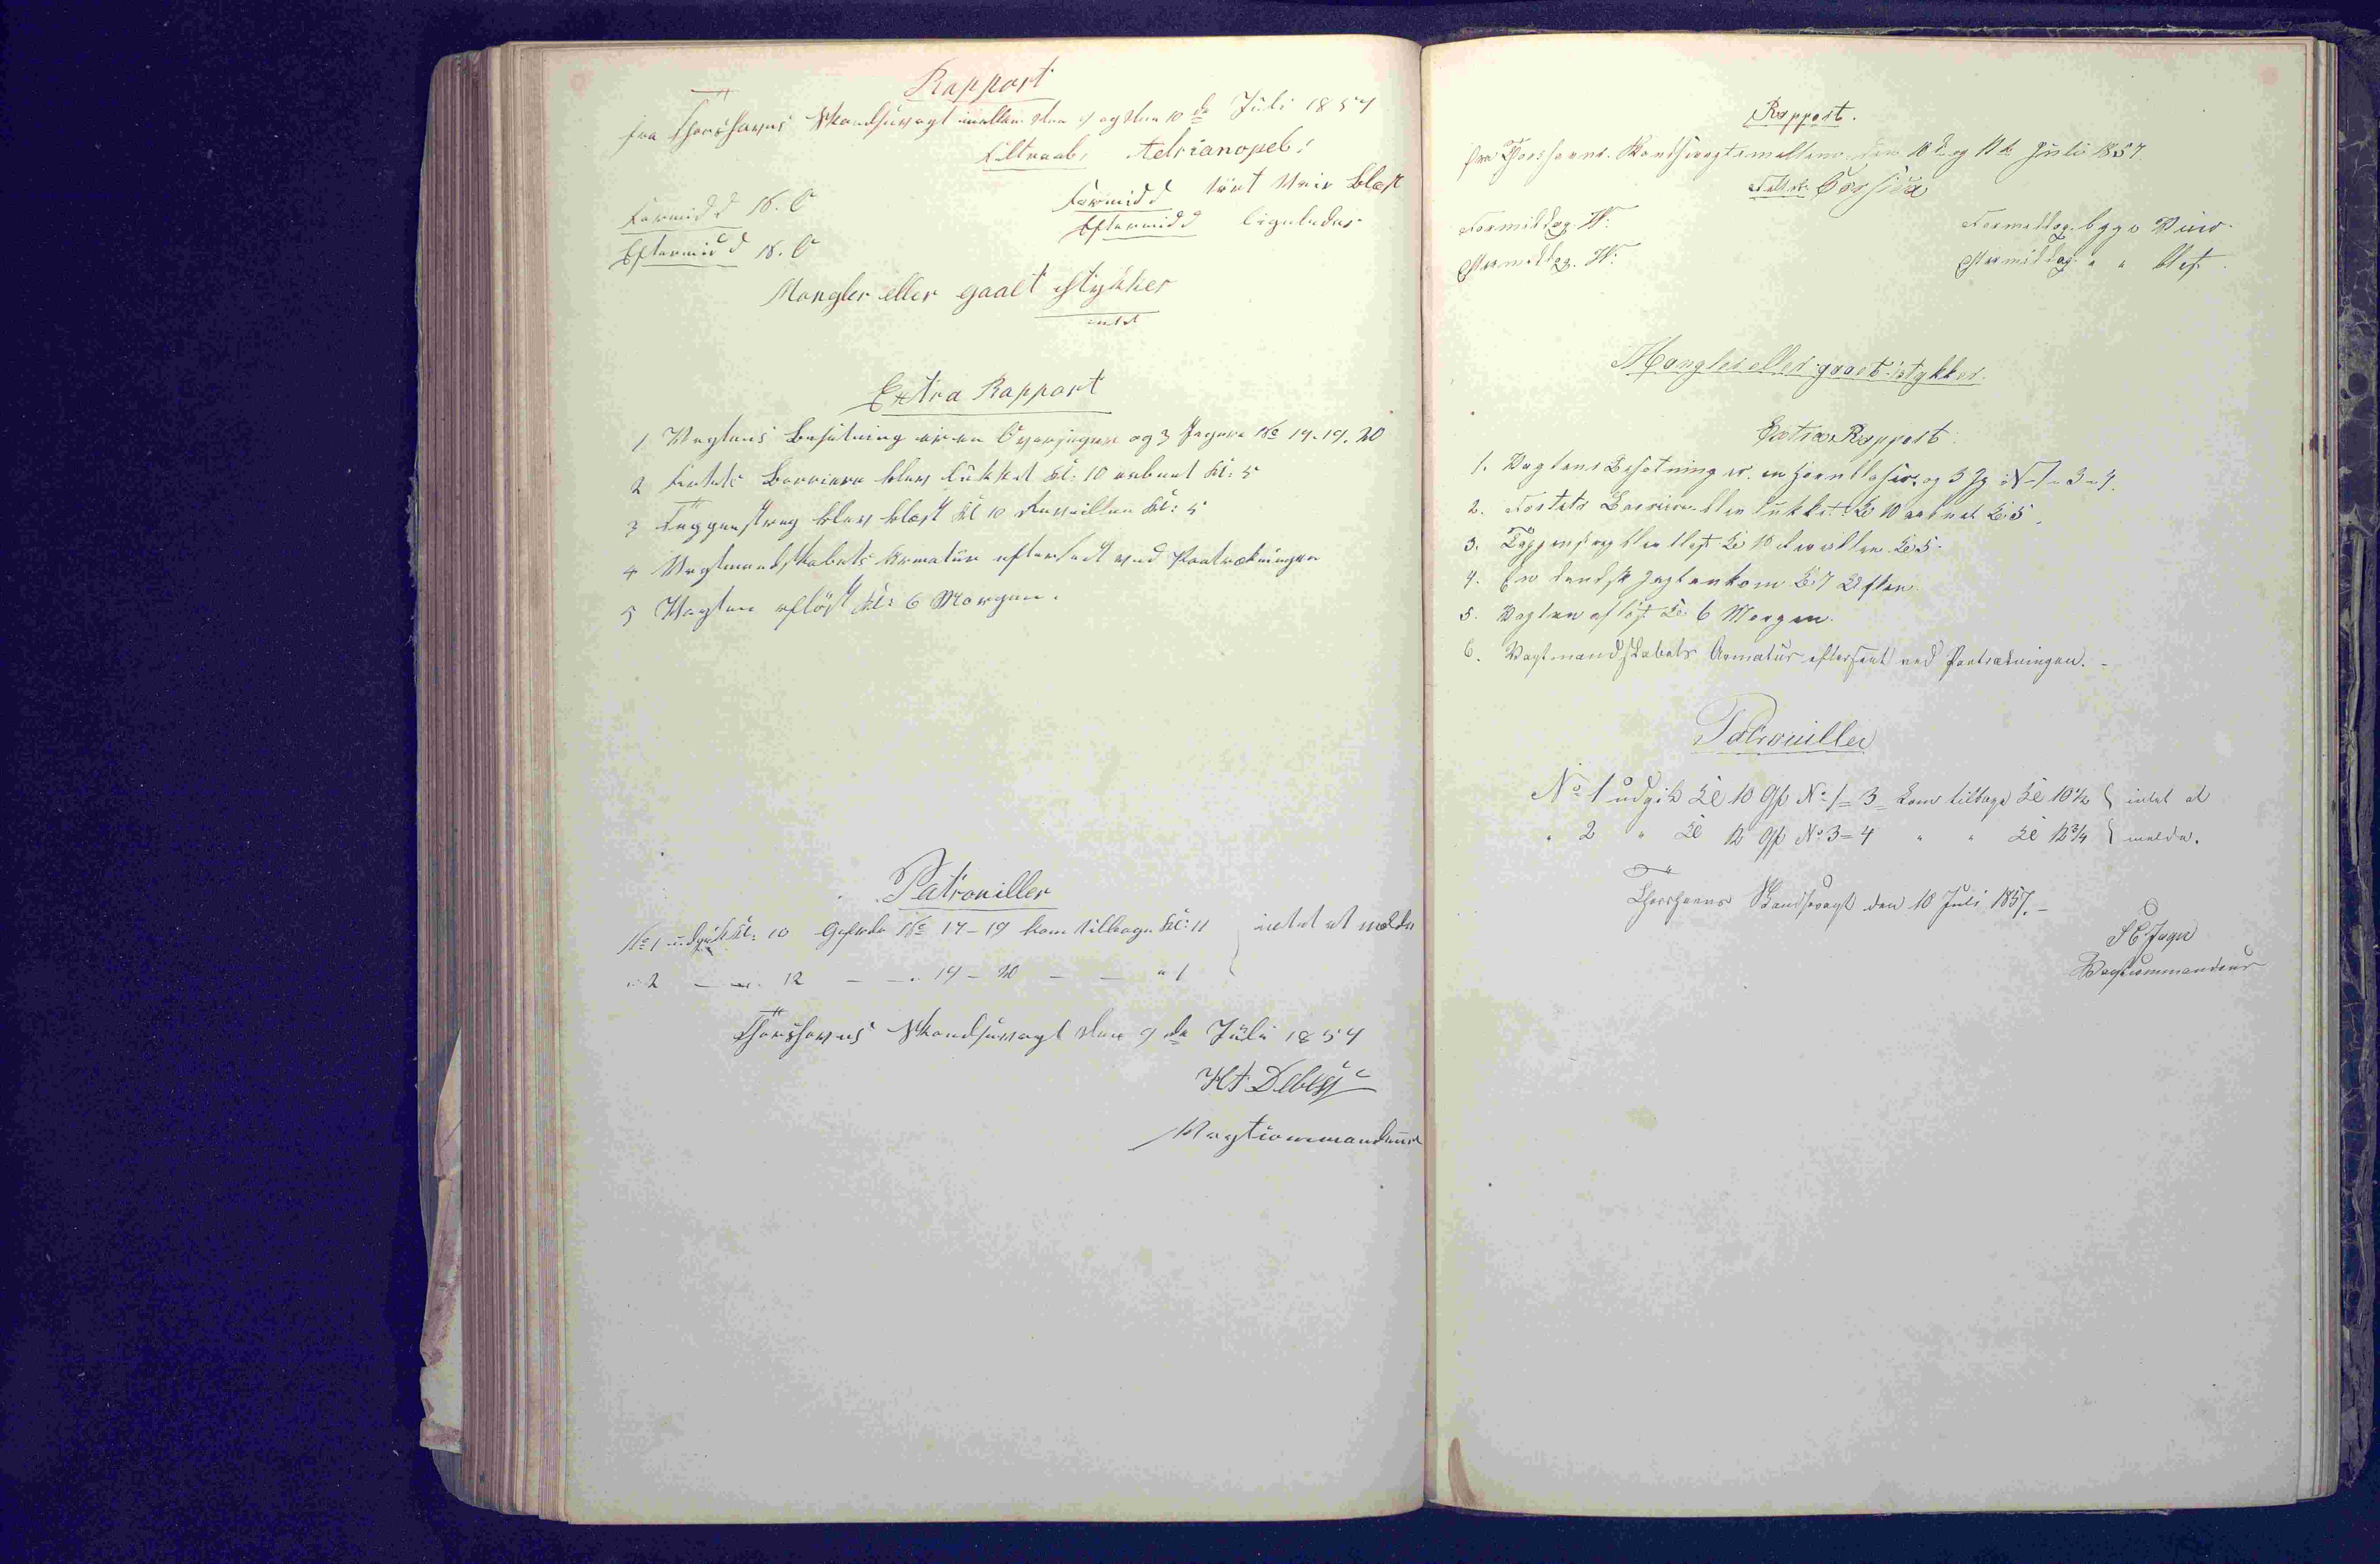 Rapport
fra Thorshavns Skandsevagt mellem den 9 og den 10de Juli 1857
Feltraab, Adrianopel:
Formidd N. O Formidd tört Veir blæst
Eftermidd N. O Eftermidd ligeledes
Mangler eller gaaet istykker
intet
Extra Rapport
1 Vagtens Besætning er en Overjæger og 3 Jægere No 17. 19. 20
2 Fortets Barriere blev lukket Kl: 10 aabnet Kl: 5
3 Tappenstreg blev blæst Kl 10 Reveillen Kl: 5
4 Vagtmandskabets Armatur efterseet ved Paatrædningen
5 Vagten aflöst Kl: 6 Morgen.
Patrouiller
No 1 udgik Kl: 10 Gefreder No 17 - 19 kom tilbage Kl: 11 } intet at melde
" 2 — " 12 — — " 19 - 20 — — " 1
Thorshavns Skandsevagt den 9de Juli 1857
Debess
Vagtcommandeur
Rapport.
fra Thorshavns Skandsevagt mellem den 10de og 11te Juli 1857.
Feltr. Corsica
Formiddag. N: Formiddag. bygo Veir.
Eftermiddag. N: Eftermiddag. " " blæst.
Mangler eller gaaet istykker.
Extra Rapport.
1. Vagtens Besætning er en Hornblæser og 3 Jg: No 1 - 3 - 4.
2. Fortets Barriere blev lukket Kl 10 aabnet Kl 5.
3. Tappenstreg blev blæst Kl 10 Reveillen Kl 5.
4. En dansk Jagt ankom Kl 7 Eften.
5. Vagten aflöst Kl 6 Morgen.
6. Vagtmandskabets Armatur efterseet ved Paatrædningen. -
Patrouiller
No 1 udgik Kl 10 Gf. No 1 = 3 - kom tilbage Kl 10½ } intet at
" 2 " Kl 12 Gf. No 3 = 4 " " Kl 12¾ } melde.
Thorshavns Skandsevagt den 10 Juli 1857. -
Vagtcommandeur